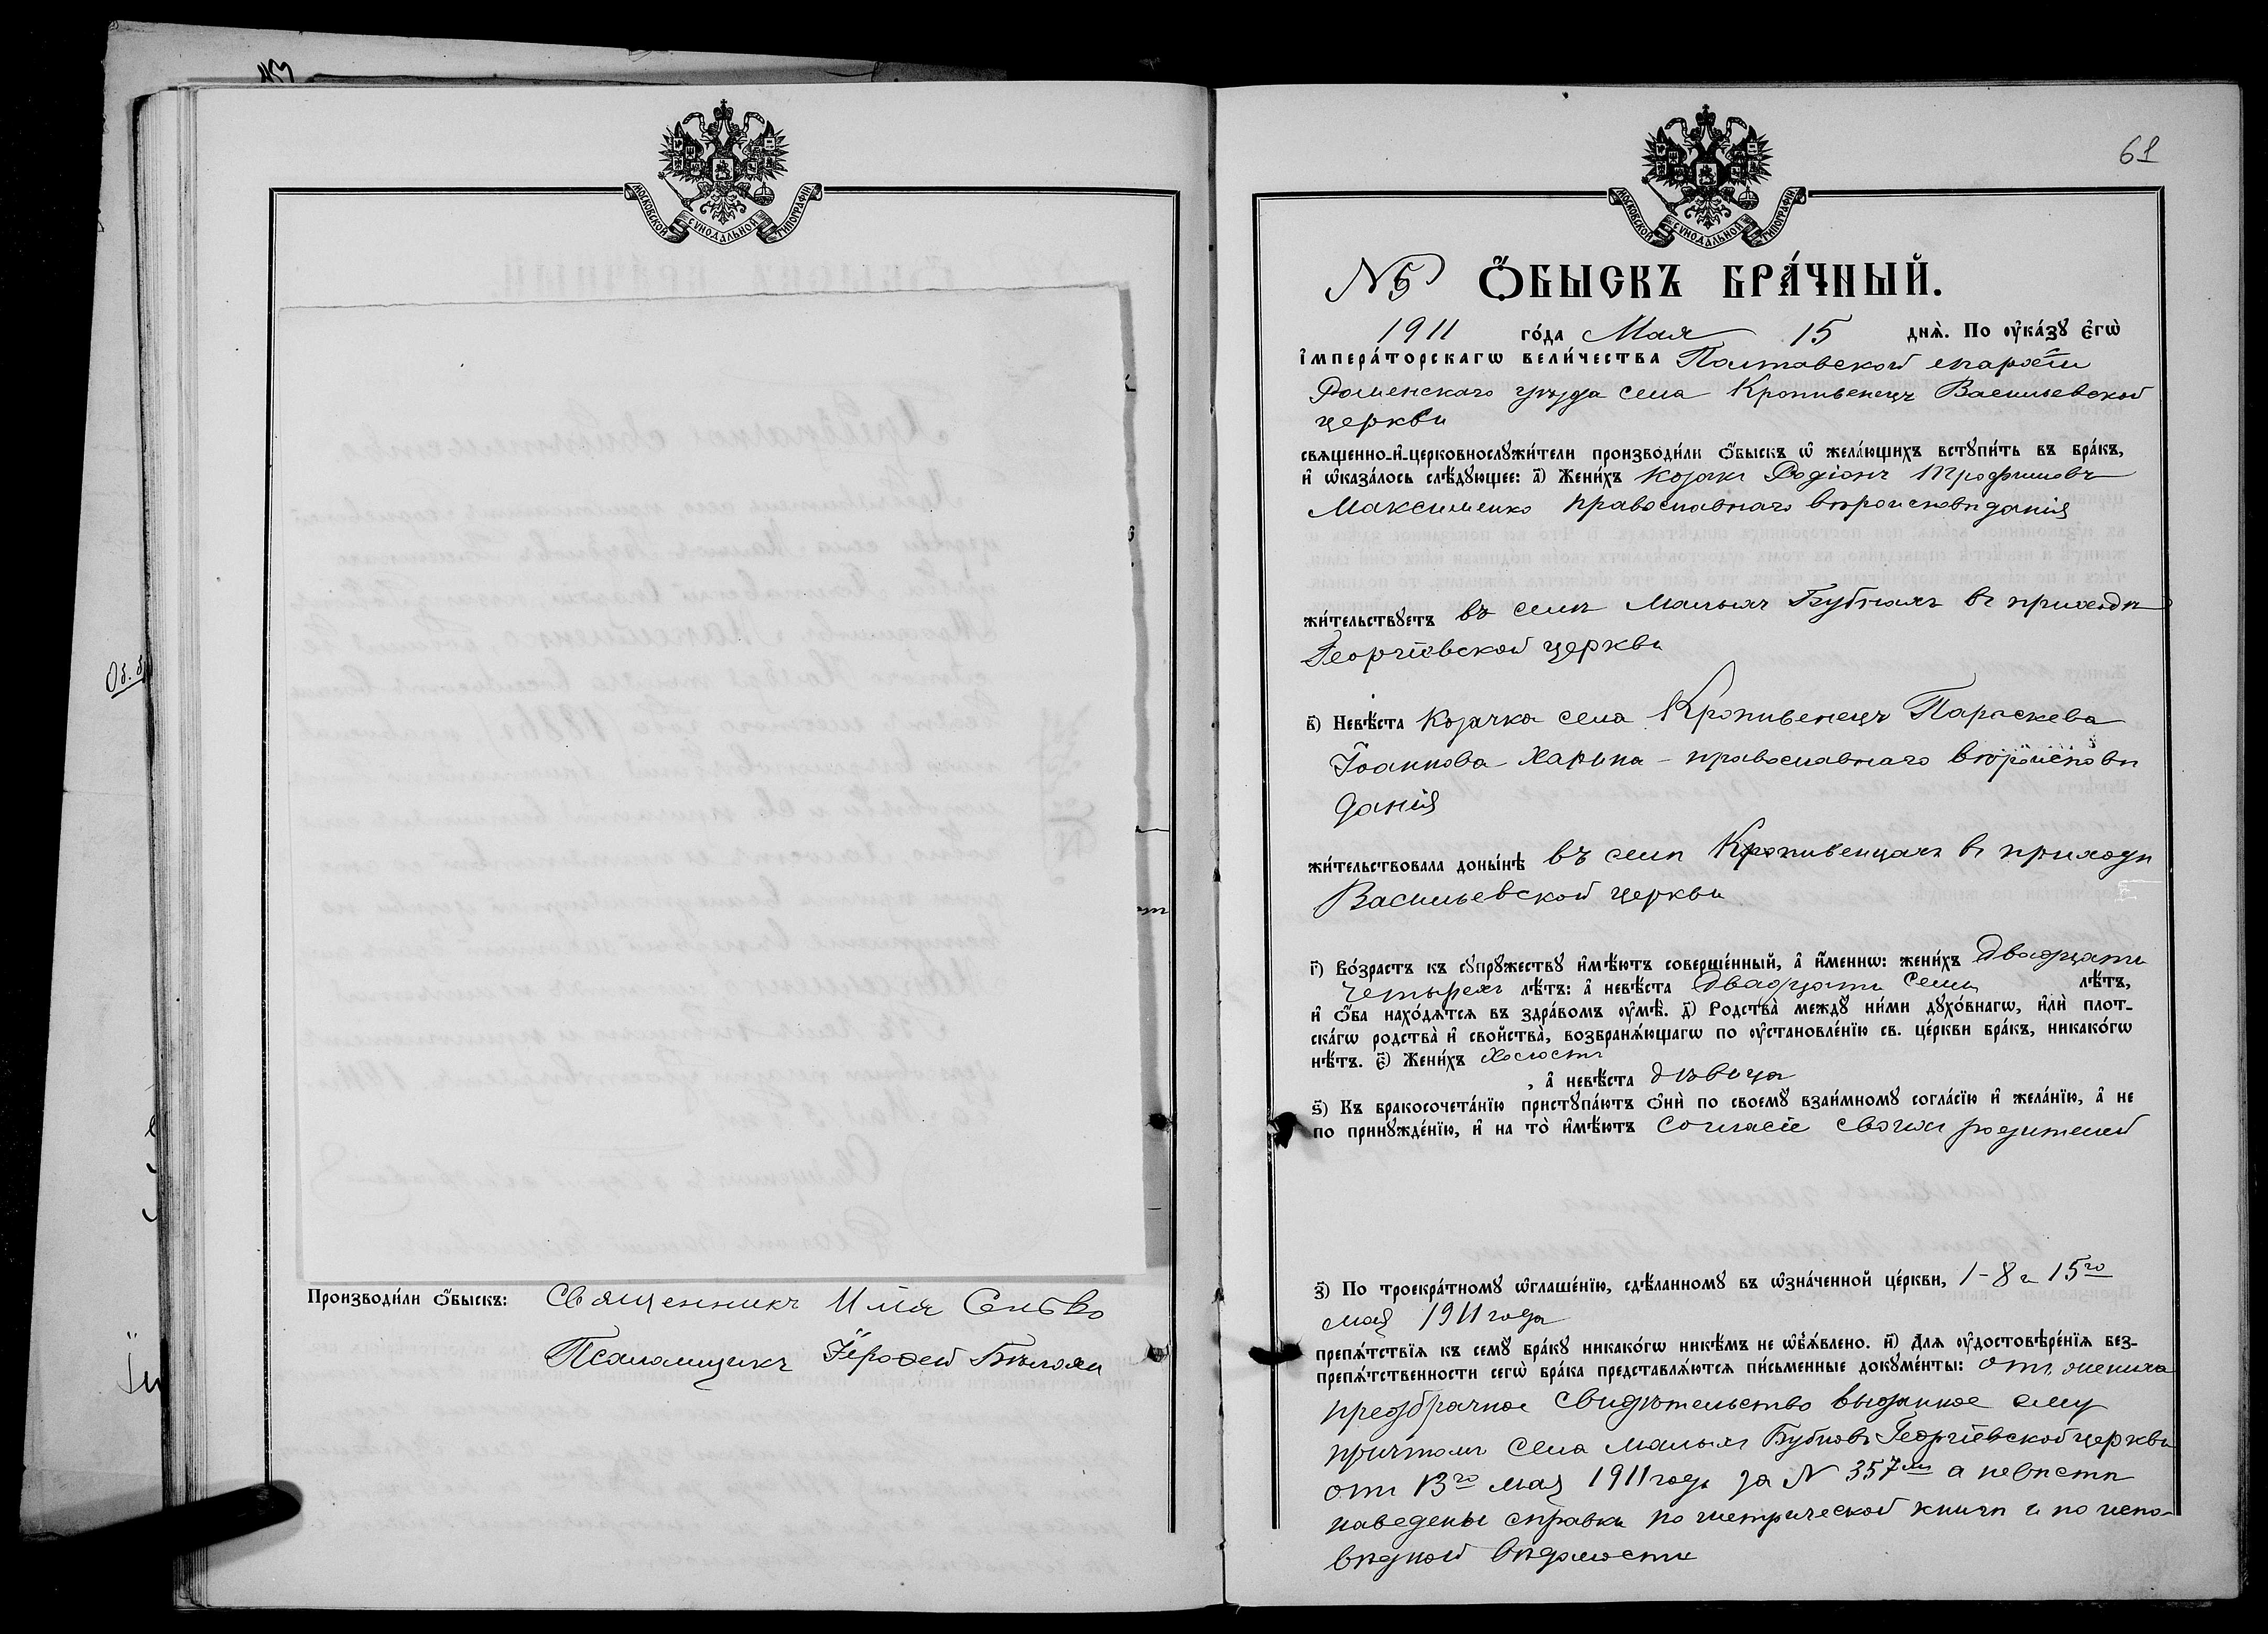 МОСКОВСКОЙ СѴНОДАЛЬНОЙ ТИПОГРАФІИ
Производи́ли ѻ҆́быскъ: Священникъ Илія Сенько
Псаломщикъ Іерофей
61
МОСКОВСКОЙ СѴНОДАЛЬНОЙ ТИПОГРАФІИ
N 5 Ѻ҆́БЫСКЪ БРА́ЧНЫЙ.
1911 го́да Мая 15 дня̀. По ᲂу҆ка́зꙋ є҆гѡ̀
і҆мпера́торскагѡ вели́чества Полтавской епархіи
Роменскаго уѣзда села Кропивенецъ Васильевской
церкви
священно-и҆-церковнослꙋжи́тели производи́ли ѻ҆́быскъ ѡ҆ жела́ющихъ встꙋпи́ть въ бра́къ,
и҆ ѡ҆каза́лось слѣ́дꙋющее: а҃) Жени́хъ козакъ Родіонъ Трофимовъ
Максименко православнаго вѣроисповѣданія
жи́тельствꙋетъ въ селѣ Малыхъ Бубнахъ въ приходѣ
Георгіевской церкви
в҃) Невѣ́ста козачка села Кропивенецъ Параскева
Іоаннова Харина - православнаго вѣроисповѣ
данія
жи́тельствовала доны́нѣ въ селѣ Кропивенцахъ въ приходѣ
Васильевской церкви
г҃) Во́зрастъ къ сꙋпрꙋжествꙋ и҆мѣ́ютъ соверше́нный, а҆ и҆́менно: жени́хъ двадцати
четырехъ лѣ́тъ: а҆ невѣ́ста двадцати семи лѣ́тъ,
и҆ ѻ҆́ба нахо́дятся въ здра́вомъ ᲂу҆мѣ̀. д҃) Родства̀ междꙋ̀ ни́ми дꙋхо́внагѡ, и҆лѝ плот-
ска́гѡ родства̀ и҆ свойства̀, возбраня́ющагѡ по ᲂу҆становле́нїю св. це́ркви бра́къ, никако́гѡ
нѣ́тъ. є҃) Жени́хъ холостъ
, а҆ невѣ́ста дѣвица
ѕ҃) Къ бракосочета́нїю пристꙋпа́ютъ ѻ҆нѝ по своемꙋ̀ взаи́мномꙋ согла́сїю и҆ жела́нїю, а҆ не
по принꙋжде́нїю, и҆ на то̀ и҆мѣ́ютъ согласіе своихъ родителей
з҃) По троекра́тномꙋ ѡ҆глаше́нїю, сдѣ́ланномꙋ въ ѡ҆зна́ченной це́ркви, 1-8 и 15го
мая 1911 года
препя́тствїя къ семꙋ̀ бра́кꙋ никако́гѡ никѣ́мъ не ѡ҆б̾я́влено. и҃) Для ᲂу҆достовѣре́нїя без-
препя́тственности сегѡ̀ бра́ка представля́ются пи́сьменные докꙋме́нты: отъ жениха
предбрачное свидѣтельство выданное ему
причтомъ села Малыхъ Бубновъ Георгіевской церкви
отъ 13го мая 1911 года за N 357мъ а невѣстѣ
наведены справки по метрической книгѣ и по испо-
вѣдной вѣдомости